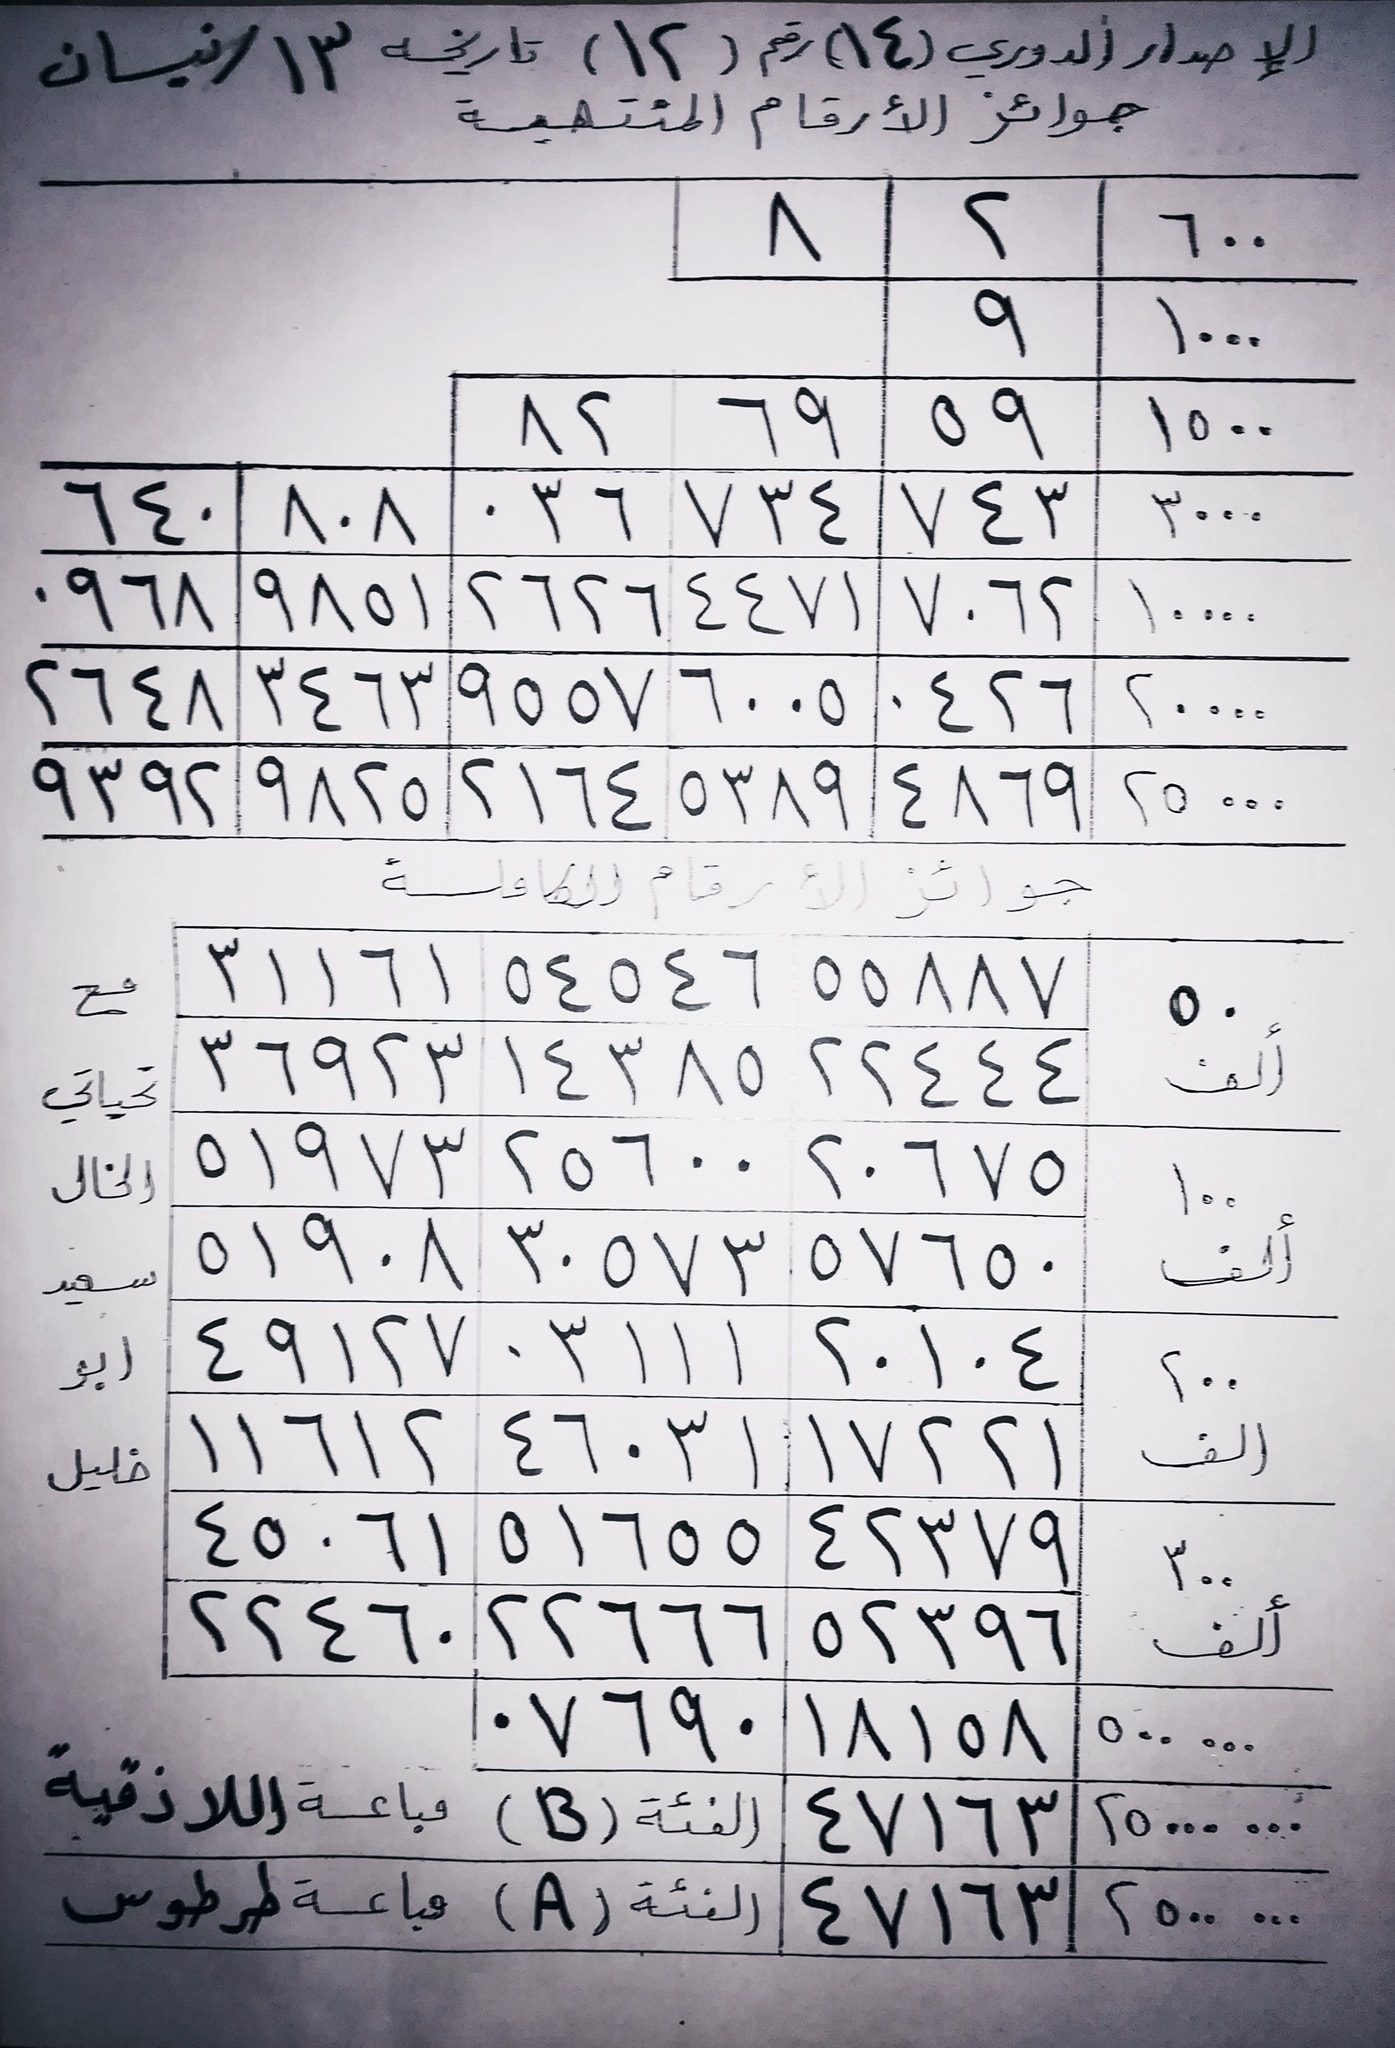 الإصدار الدوري (١٤) رقم (١٢) تاريخه ١٣/نيسان
جوائز الأرقام المنتهية
٦٠٠ ٢ ٨
١٠٠٠ ٩
١٥٠٠ ٥٩ ٦٩ ٨٢
٣٠٠٠ ٧٤٣ ٧٣٤ ٠٣٦ ٨٠٨ ٦٤٠
١٠٠٠٠ ٧٠٦٢ ٤٤٧١ ٢٦٢٦ ٩٨٥١ ٠٩٦٨
٢٠٠٠٠ ٠٤٢٦ ٦٠٠٥ ٩٥٥٧ ٣٤٦٣ ٢٦٤٨
٢٥٠٠٠ ٤٨٦٩ ٥٣٨٩ ٢١٦٤ ٩٨٢٥ ٩٣٩٢
جوائز الأرقام الكاملة
٥٠ ٥٥٨٨٧ ٥٤٥٤٦ ٣١١٦١ مع
ألف ٢٢٤٤٤ ١٤٣٨٥ ٣٦٩٢٣ تحياتي
١٠٠ ٢٠٦٧٥ ٢٥٦٠٠ ٥١٩٧٣ الخال
ألف ٥٧٦٥٠ ٣٠٥٧٣ ٥١٩٠٨ سعيد
٢٠٠ ٢٠١٠٤ ٠٣١١١ ٤٩١٢٧ ابو
الف ١٧٢٢١ ٤٦٠٣١ ١١٦١٢ خليل
٣٠٠ ٤٢٣٧٩ ٥١٦٥٥ ٤٥٠٦١
ألف ٥٢٣٩٦ ٢٢٦٦٦ ٢٢٤٦٠
٥٠٠ ٠٠٠ ١٨١٥٨ ٠٧٦٩٠
٢٥٠٠٠ ٠٠٠ ٤٧١٦٣ الفئة (B) مباعة اللاذقية
٢٥٠٠ ٠٠٠ ٤٧١٦٣ الفئة (A) مباعة طرطوس